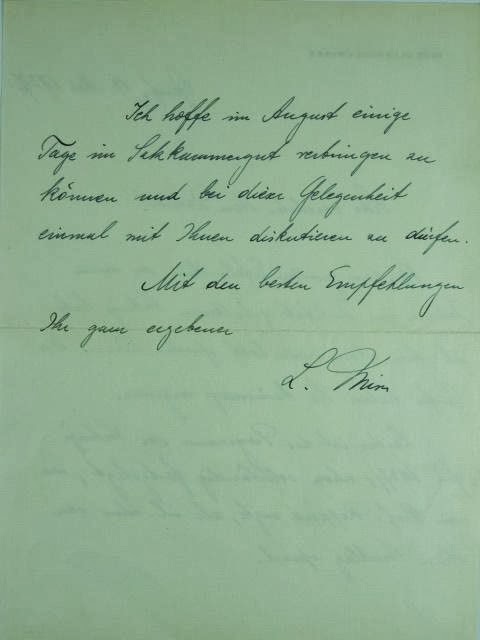 Ich hoffe im August einige
Tage im Salzkammergut verbringen zu
können und bei dieser Gelegenheit
einmal mit Ihnen diskutieren zu dürfen.
Mit den besten Empfehlungen
Ihr ganz ergebener
L.